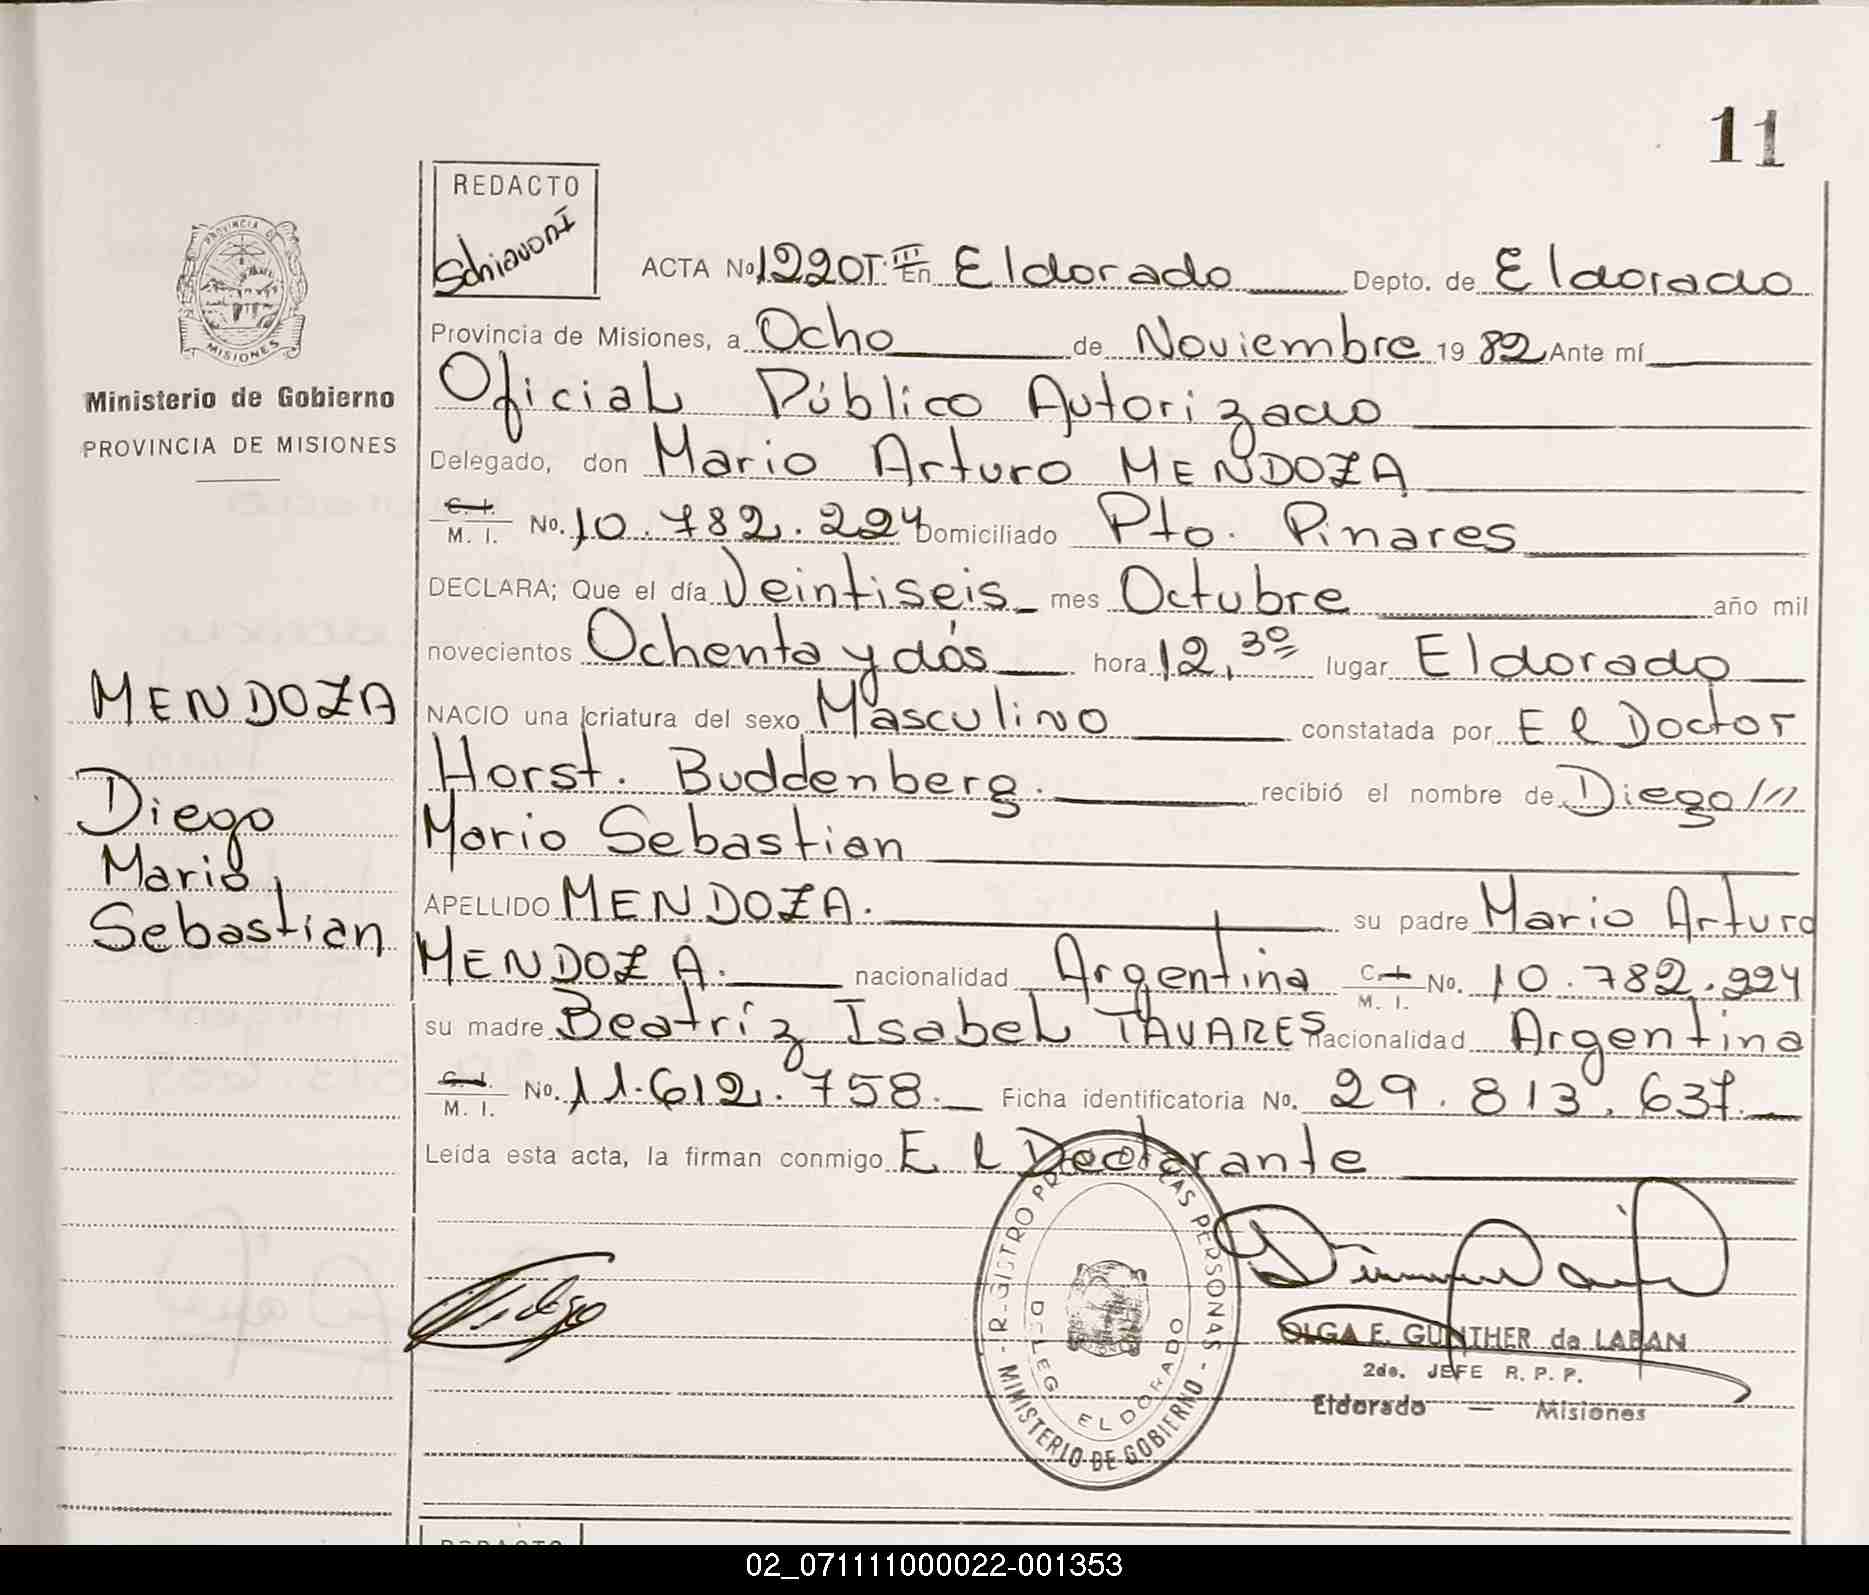 11
REDACTO
Schiavoni
PROVINCIA DE
MISIONES
Ministerio de Gobierno
PROVINCIA DE MISIONES
ACTA No 1220 T. III En Eldorado Depto. de Eldorado
Provincia de Misiones, a Ocho de Noviembre 1982 Ante mí
Oficial Público Autorizado
Delegado, don Mario Arturo MENDOZA
C. I. M. I. No. 10.782.224 Domiciliado Pto. Pinares
DECLARA; Que el día Veintiseis mes Octubre año mil
novecientos Ochenta y dós hora 12,30 lugar Eldorado
MENDOZA
NACIO una criatura del sexo Masculino constatada por El Doctor
Horst. Buddenberg. recibió el nombre de Diego ///
Diego
Mario Sebastian
Mario
APELLIDO MENDOZA. su padre Mario Arturo
Sebastian
MENDOZA. nacionalidad Argentina C. I. M. I. No. 10.782.224
su madre Beatríz Isabel TAVARES nacionalidad Argentina
C. I. M. I. No. 11.612.758. Ficha identificatoria No. 29.813.637.
Leída esta acta, la firman conmigo El Declarante
REGISTRO PROV. DE LAS PERSONAS - MINISTERIO DE GOBIERNO -
DELEG ELDORADO
OLGA E. GUNTHER de LABAN
2do. JEFE R. P. P.
Eldorado — Misiones
REDACTO
02_071111000022-001353